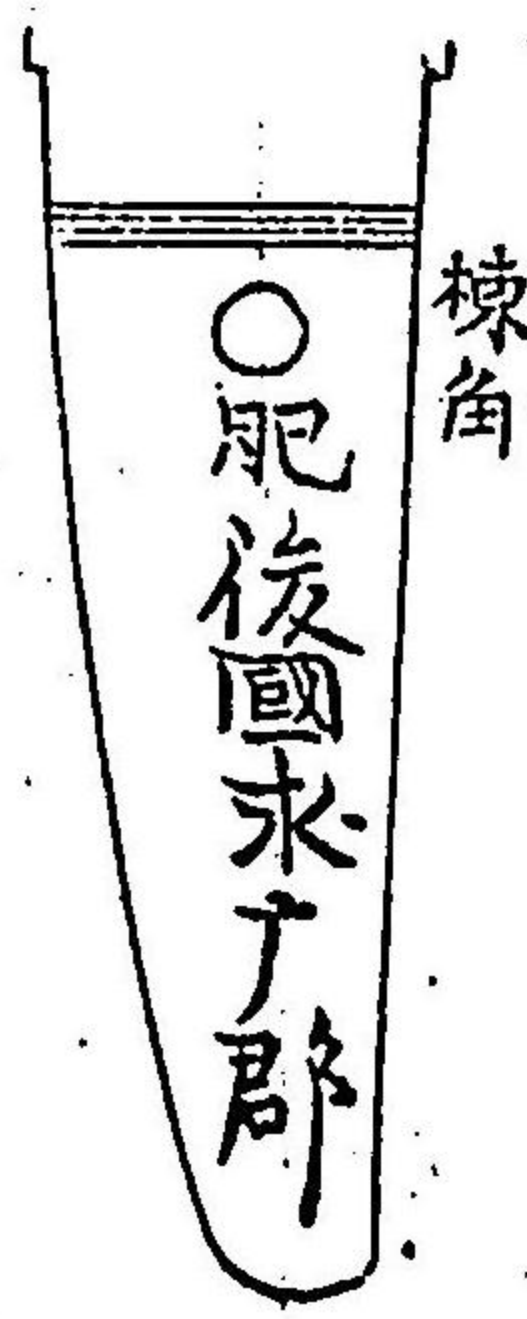 棟角
肥後國求广郡